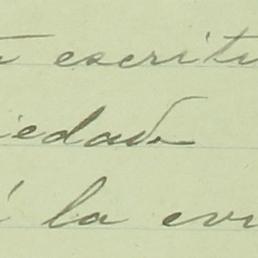 escritu
iedad
la evi